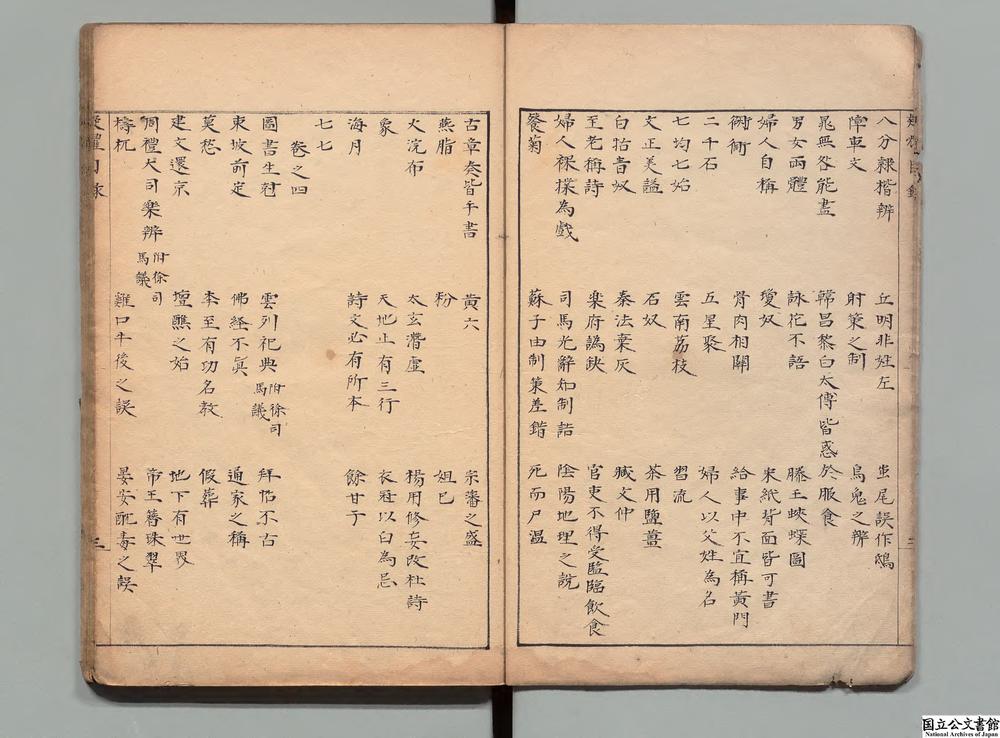 八分隸楷辨　丘明非姓左　蚩尾誤作鴟
障車文　射策之制　烏鬼之辨
晁無咎能畫　韓昌黎白太傅皆惑於服食
男女兩體　詠花不語　滕王蛺蝶圖
婦人自稱　瓊奴　宋紙背面皆可書
衚衕　骨肉相關　給事中不宜稱黃門
二千石　五星聚　婦人以父姓為名
七均七始　雲南荔枝　習流
文正美謚　石奴　茶用鹽薑
白牯青奴　秦法棄灰　臧文仲
至老稱詩　樂府譌缺　官吏不得受監臨飲食
婦人裸撲為戲　司馬光辭知制誥　陰陽地理之說
餐菊　蘇子由制策差錯　死而尸溫
古章奏皆手書　黃六　宗藩之盛
燕脂　粉　妲己
火浣布　太玄潛虛　楊用修妄改杜詩
象　天地止有三行　衣冠以白為忌
海月　詩文必有所本　餘甘子
七七
卷之四
圖書生尅　雲列祀典附徐司馬議　拜帖不古
東坡前定　佛經不真　通家之稱
莫愁　李至有功名教　假葬
建文還京　壇醮之始　地下有世界
周禮大司樂辨附徐司馬議　帝王簪珠翠
檮杌　雞口牛後之誤　晏安酖毒之誤
疑耀目錄
三
国立公文書館
National Archives of Japan